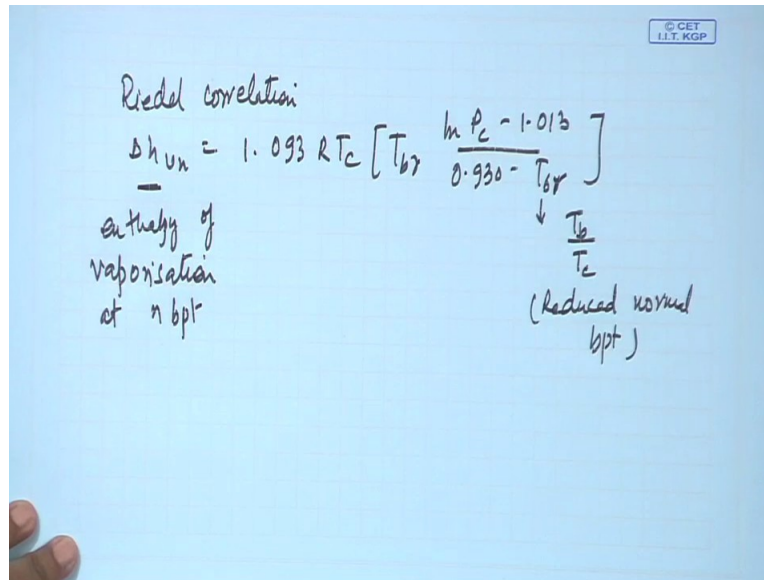 © CET
I.I.T. KGP
Riedel correlation
Δh_vn = 1.093 R T_c [ T_br (ln P_c - 1.013) / (0.930 - T_br) ]
↓ T_b / T_c
enthalpy of
vaporisation
at n bpt
(Reduced normal
bpt)